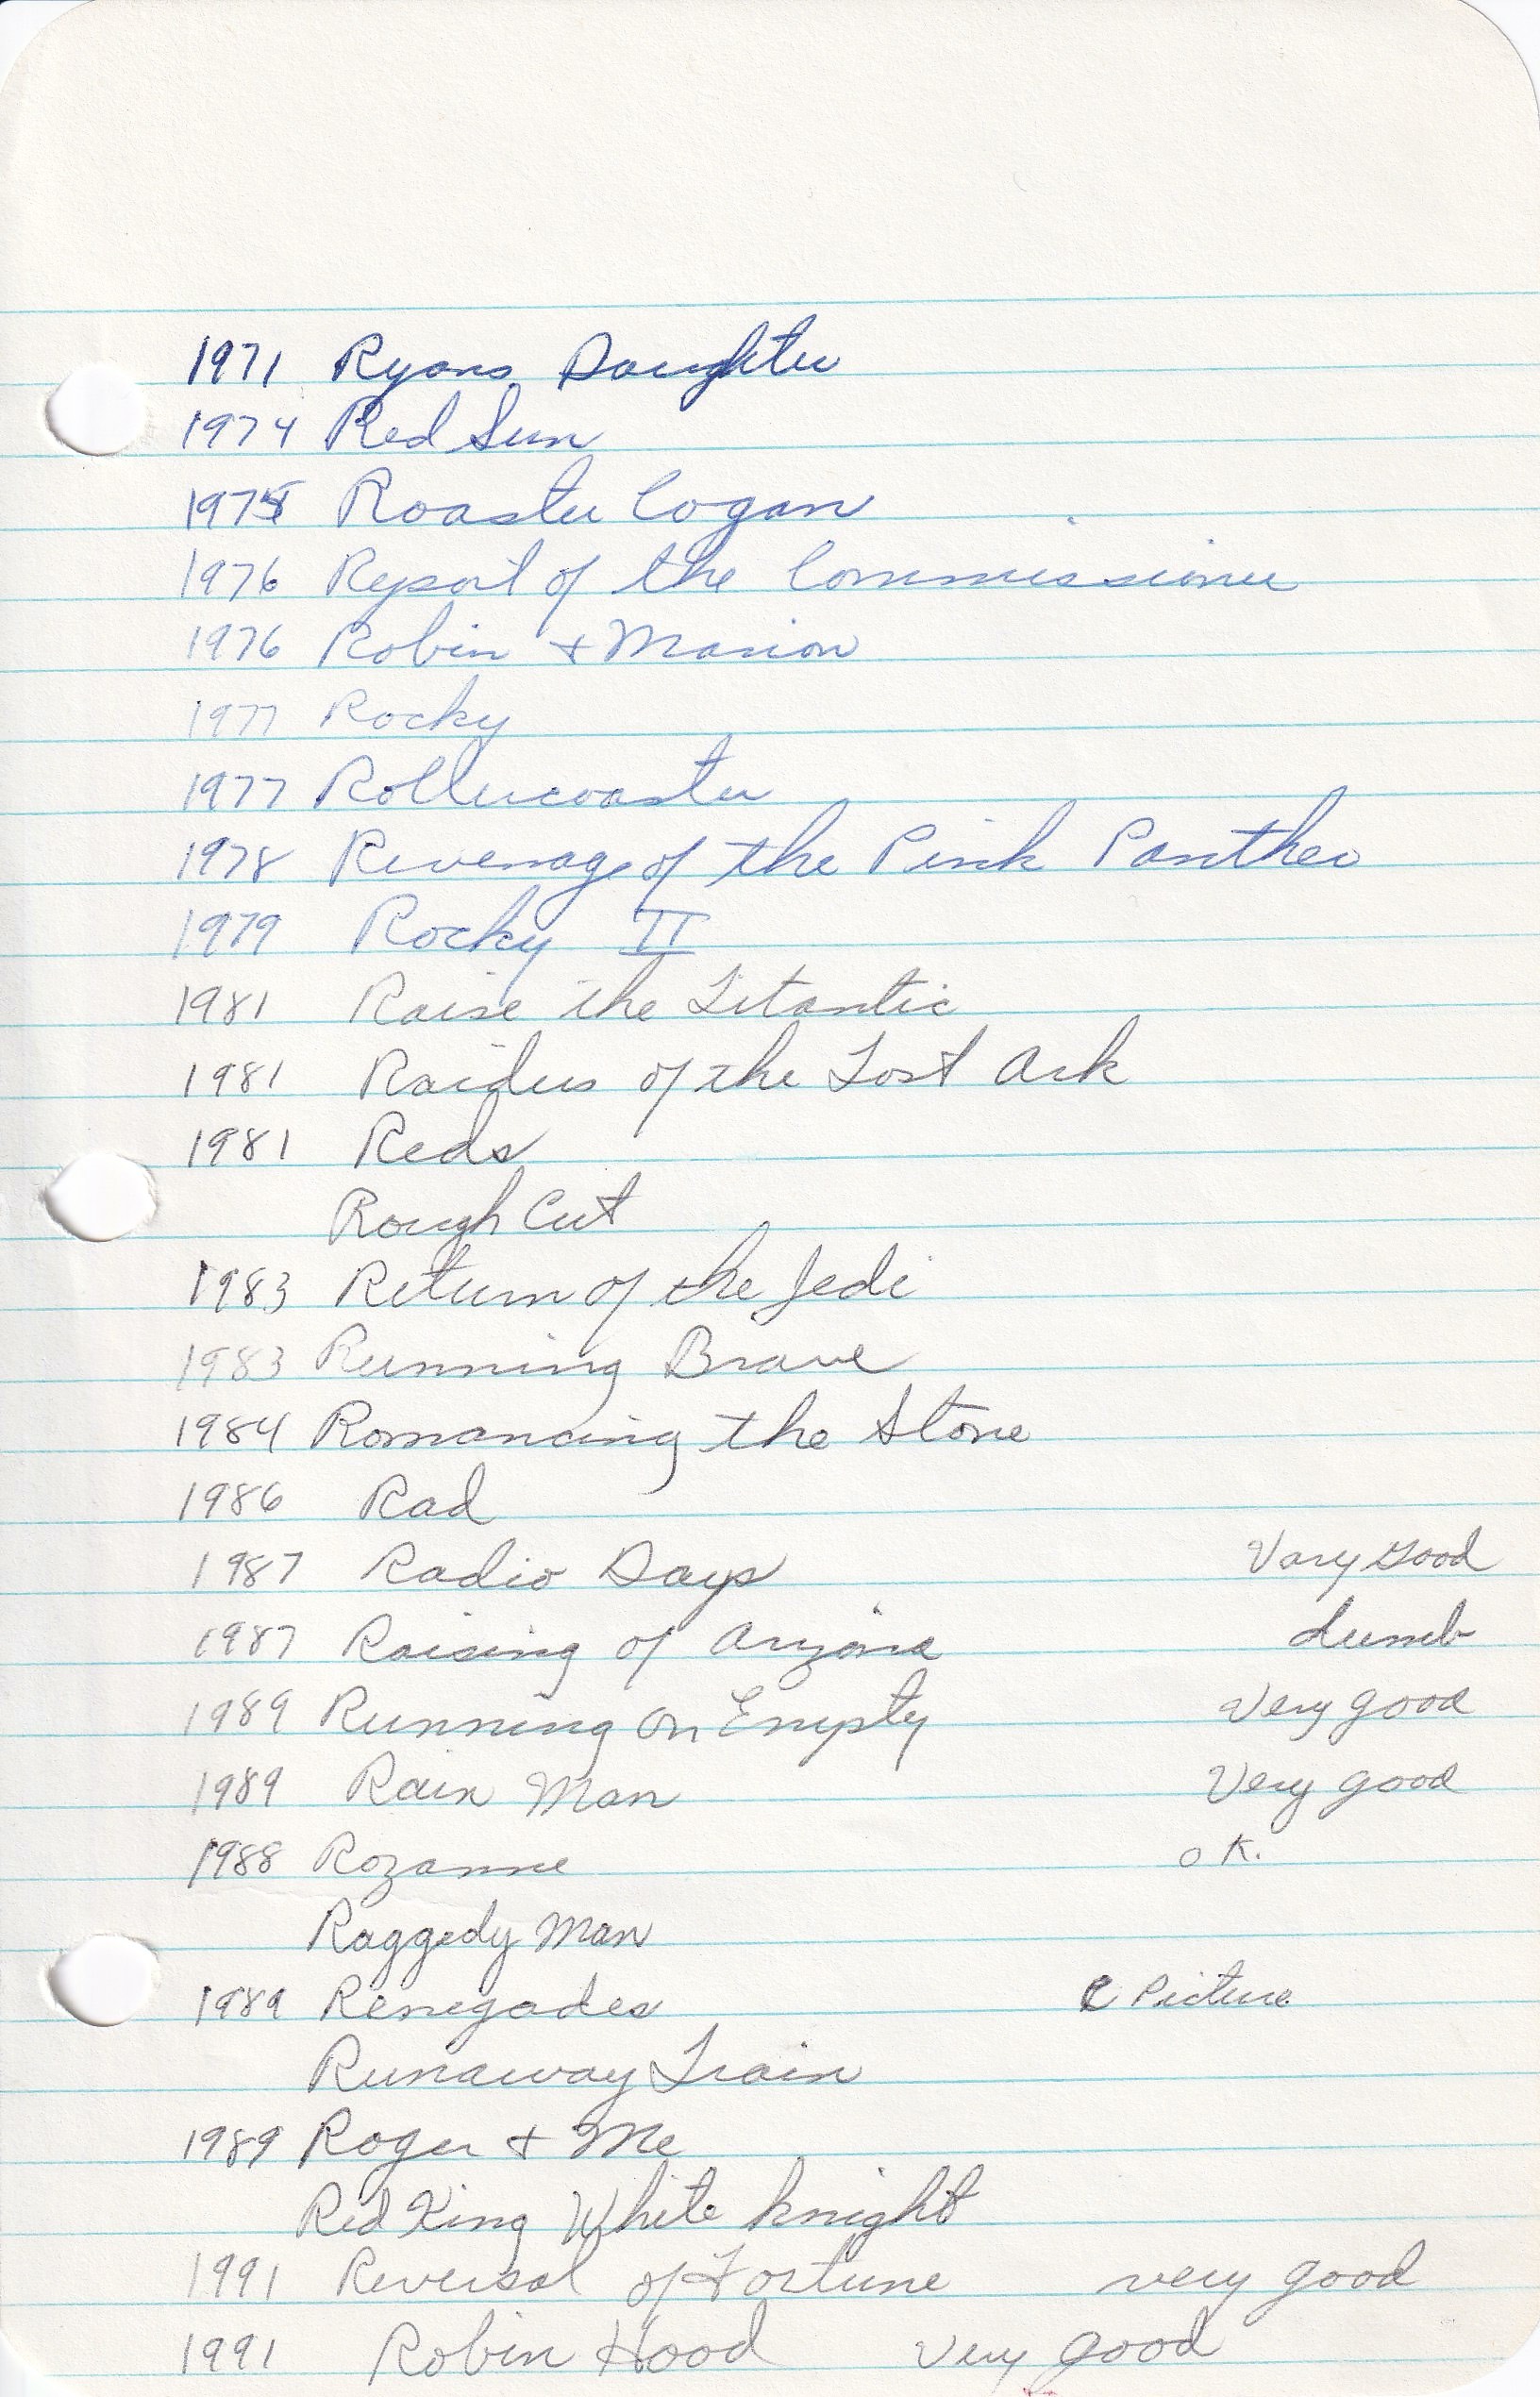 1971 Ryans Daughter
1974 Red Sun
1975 Rooster Cogan
1976 Report of the Commissioner
1976 Robin + Marion
1977 Rocky
1977 Rollercoaster
1978 Revenage of the Pink Panther
1979 Rocky II
1981 Raise the Titantic
1981 Raiders of the Lost Ark
1981 Reds
Rough Cut
1983 Return of the Jedi
1983 Running Brave
1984 Romancing the Stone
1986 Rad
1987 Radio Days Very Good
1987 Raising of Aryzona dumb
1989 Running On Empty Very good
1989 Rain Man Very good
1988 Rozanne O K.
Raggedy Man
1989 Renegades C Picture
Runaway Train
1989 Roger + Me
Red King White Knight
1991 Reversal of Fortune very good
1991 Robin Hood Very good